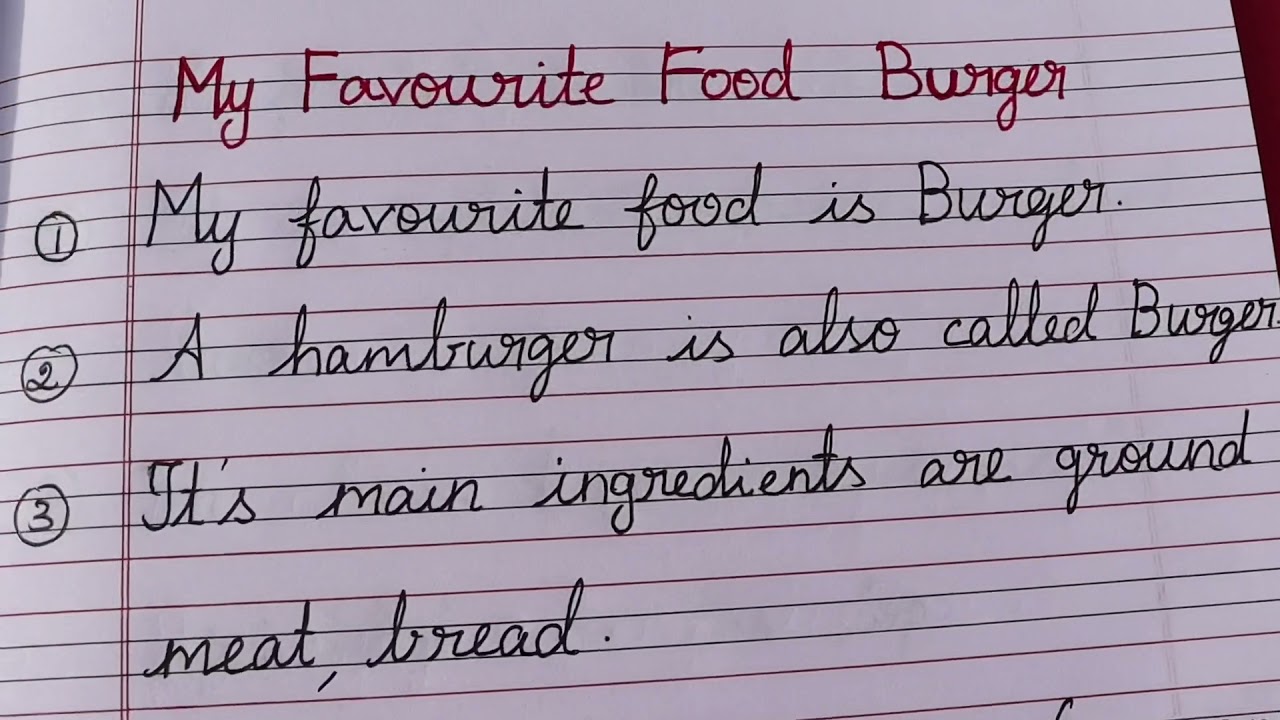 My Favourite Food Burger
① My favourite food is Burger.
② A hamburger is also called Burger.
③ It's main ingredients are ground
meat, bread.